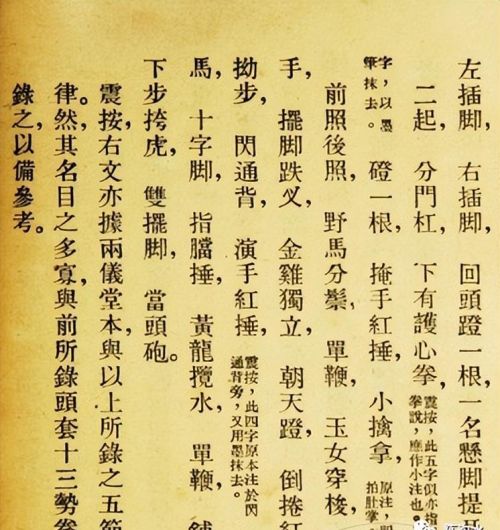 左插脚，右插脚，回頭蹬一根，一名懸脚提
二起，分門杠，下有護心拳，震按，此五字似亦 拳說，應作小注也。
字，以墨筆抹去。磴一根，掩手紅捶，小擒拿，原注，即拍肚掌
前照後照，野馬分鬃，單鞭，玉女穿梭，
手，擺脚跌叉，金雞獨立，朝天蹬，倒捲紅
拗步，閃通背，演手紅捶，震按，此四字原本注於閃通背旁，又用墨抹去。
馬，十字脚，指膛捶，黃龍攬水，單鞭，
下步挎虎，雙擺脚，當頭砲。
震按，右文亦據兩儀堂本，與以上所錄之五節
律。然其名目之多寡，與前所錄頭套十三勢拳
錄之，以備參考。